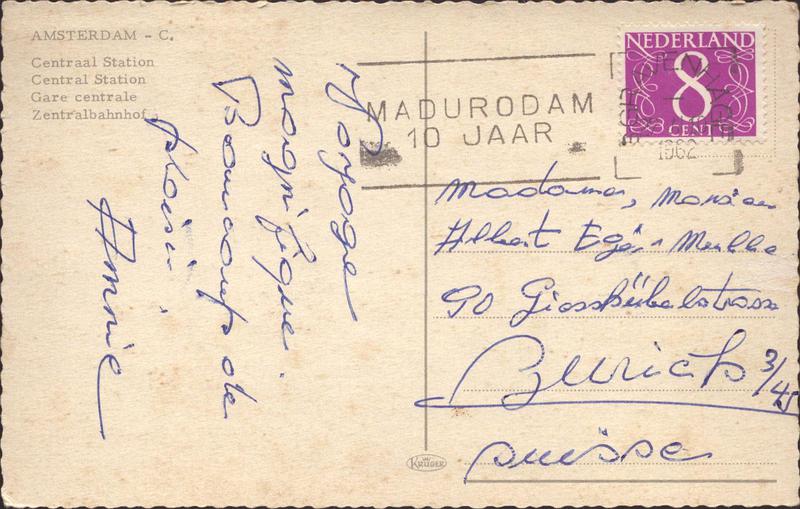 AMSTERDAM - C.
Centraal Station
Central Station
Gare centrale
Zentralbahnhof
Voyage
magnifique.
Beaucoup de
plaisir
Annie
MADURODAM
10 JAAR
NEDERLAND
8
CENT
1962
Madame, Monsieur
Albert Egg
90 Giesshübelstrasse
Zürich 3/45
Suisse
KRÜGER